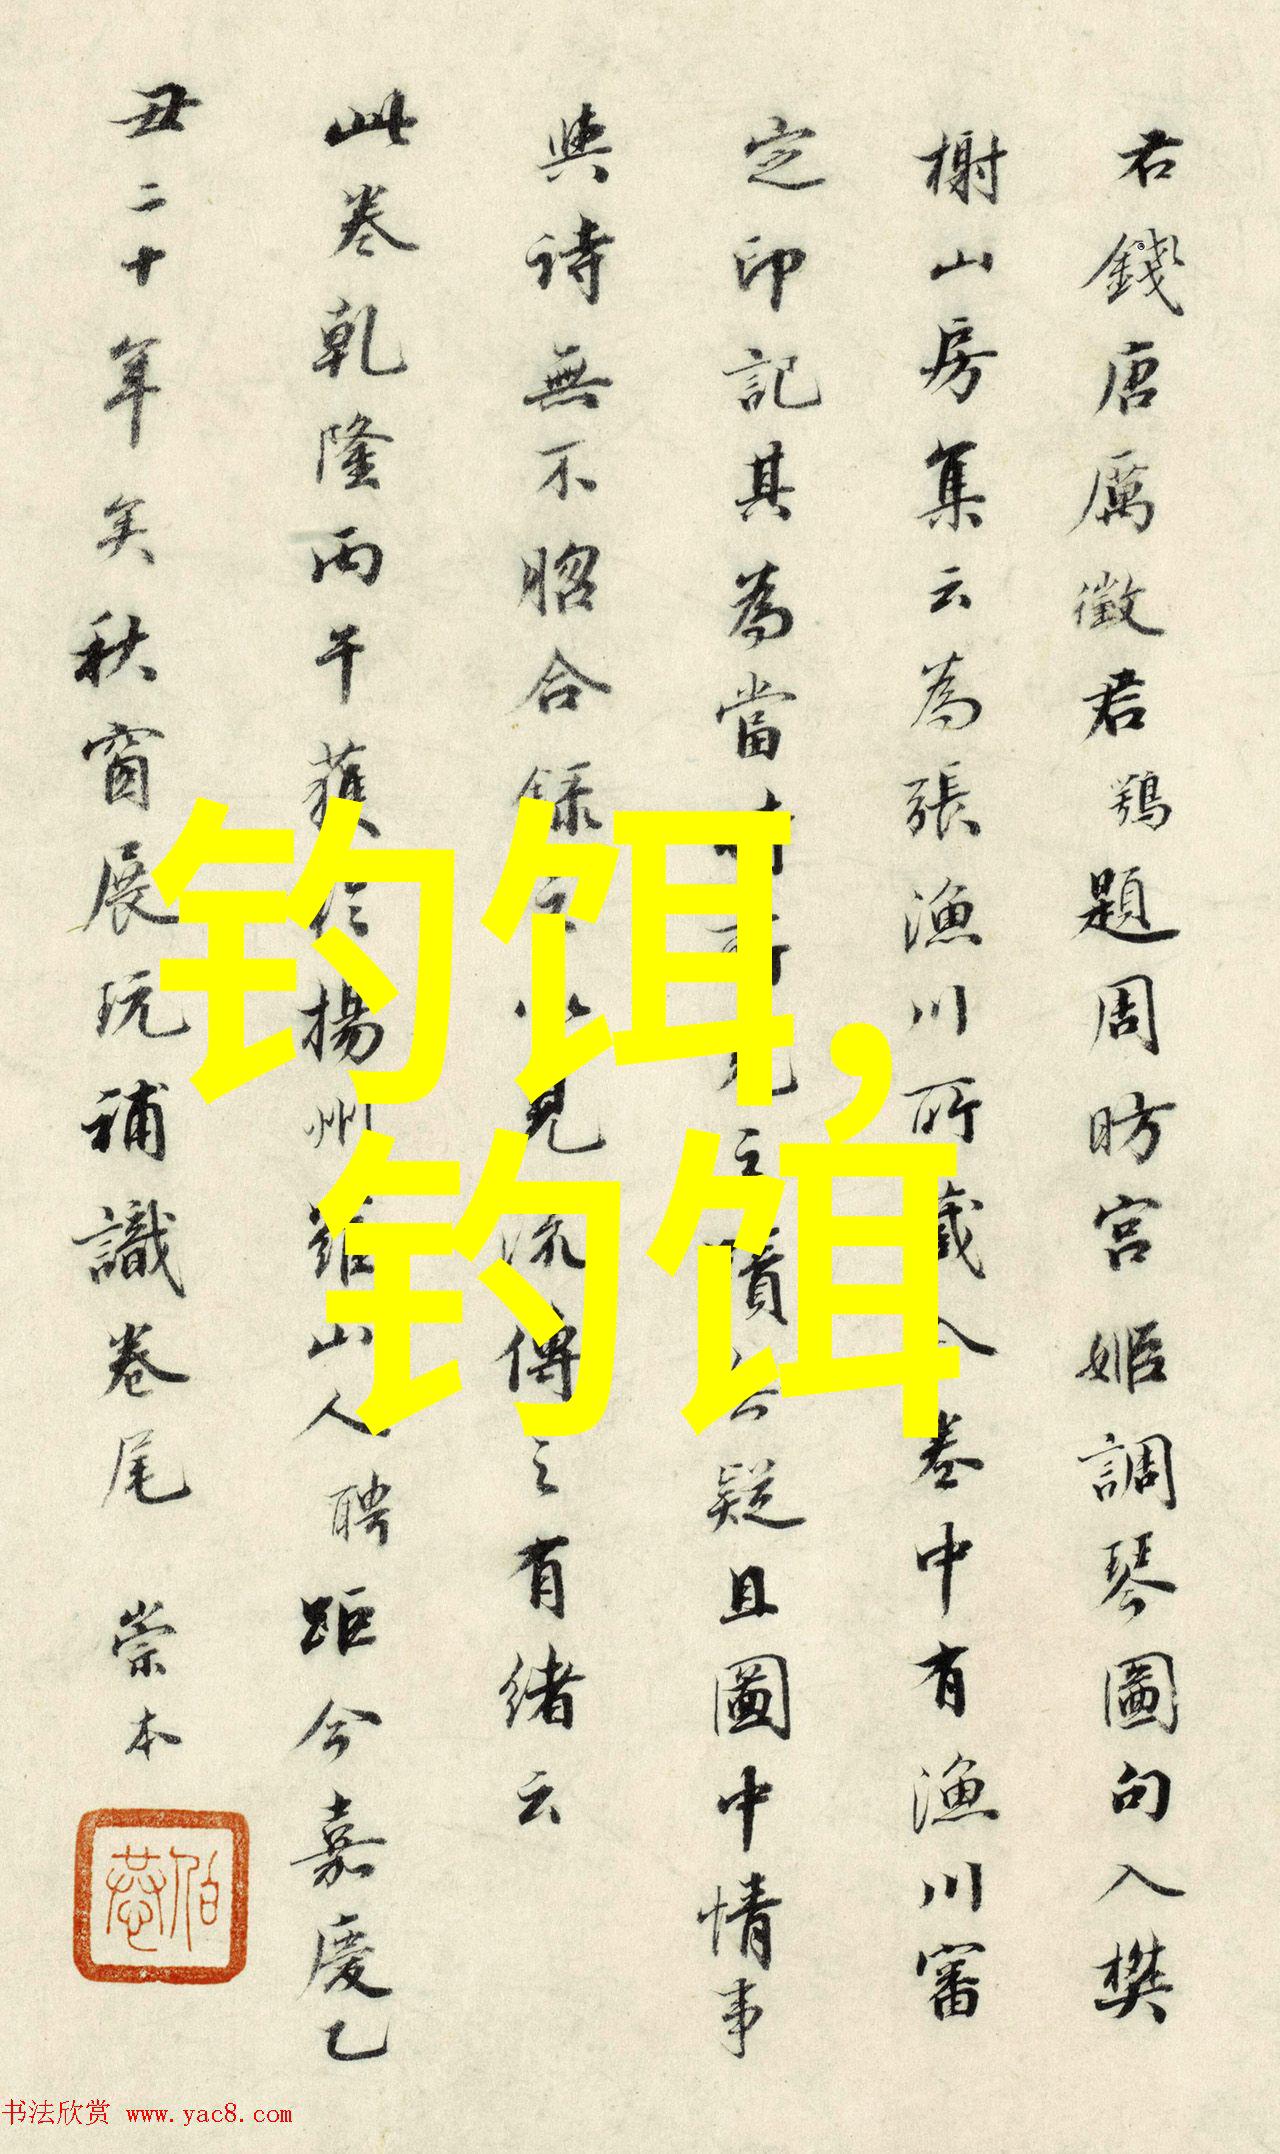 君錢唐厲徵君鶚題周昉宮姬調琴圖句入樊
榭山房集云為張漁川所藏今卷中有漁川審
定印記其為當時所見之蹟無疑且圖中情事
與詩無不昭合錄之以見流傳之有緒云
此卷乾隆丙午獲從揚州羅山人聘距今嘉慶乙
丑二十年矣秋窗展玩補識卷尾 崇本
钓饵,
钓饵
书法欣赏 www.yac8.com